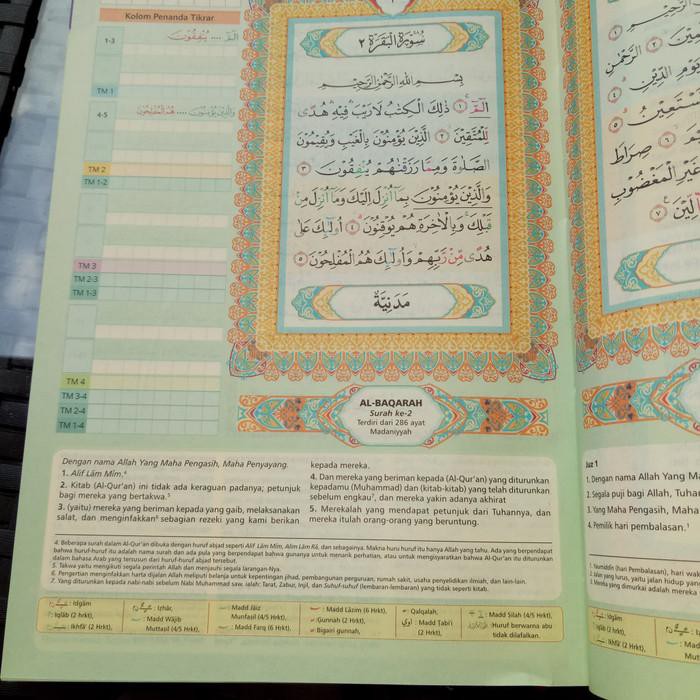 Kolom Penanda Tikrar
1-3
الٓمّٓ .... يُنْفِقُوْنَ
TM 1
4-5
وَالَّذِيْنَ يُؤْمِنُوْنَ .... هُمُ الْمُفْلِحُوْنَ
TM 2
TM 1-2
TM 3
TM 2-3
TM 1-3
TM 4
TM 3-4
TM 2-4
TM 1-4
سُوْرَةُ الْبَقَرَةِ ٢
بِسْمِ اللّٰهِ الرَّحْمٰنِ الرَّحِيْمِ
الٓمّٓ ۚ ١ ذٰلِكَ الْكِتٰبُ لَا رَيْبَ فِيْهِ هُدًى
لِّلْمُتَّقِيْنَ ٢ الَّذِيْنَ يُؤْمِنُوْنَ بِالْغَيْبِ وَيُقِيْمُوْنَ
الصَّلٰوةَ وَمِمَّا رَزَقْنٰهُمْ يُنْفِقُوْنَ ٣
وَالَّذِيْنَ يُؤْمِنُوْنَ بِمَآ اُنْزِلَ اِلَيْكَ وَمَآ اُنْزِلَ مِنْ
قَبْلِكَ وَبِالْاٰخِرَةِ هُمْ يُوْقِنُوْنَ ٤ اُولٰۤىِٕكَ عَلٰى
هُدًى مِّنْ رَّبِّهِمْ وَاُولٰۤىِٕكَ هُمُ الْمُفْلِحُوْنَ ٥
مَدَنِيَّةٌ
AL-BAQARAH
Surah ke-2
Terdiri dari 286 ayat
Madaniyyah
Dengan nama Allah Yang Maha Pengasih, Maha Penyayang.
1. Alif Lām Mīm.⁴
2. Kitab (Al-Qur'an) ini tidak ada keraguan padanya; petunjuk
bagi mereka yang bertakwa.⁵
3. (yaitu) mereka yang beriman kepada yang gaib, melaksanakan
salat, dan menginfakkan⁶ sebagian rezeki yang kami berikan
kepada mereka.
4. Dan mereka yang beriman kepada (Al-Qur'an) yang diturunkan
kepadamu (Muhammad) dan (kitab-kitab) yang telah diturunkan
sebelum engkau⁷, dan mereka yakin adanya akhirat
5. Merekalah yang mendapat petunjuk dari Tuhannya, dan
mereka itulah orang-orang yang beruntung.
4. Beberapa surah dalam Al-Qur'an dibuka dengan huruf abjad seperti Alif Lām Mīm, Alim Lām Rā, dan sebagainya. Makna huruf itu hanya Allah yang tahu. Ada yang berpendapat
bahwa huruf-huruf itu adalah nama surah dan ada pula yang berpendapat bahwa gunanya untuk menarik perhatian, atau untuk mengisyaratkan bahwa Al-Qur'an itu diturunkan
dalam bahasa Arab yang tersusun dari huruf-huruf abjad tersebut.
5. Takwa yaitu mengikuti segala perintah Allah dan menjauhi segala larangan-Nya.
6. Pengertian menginfakkan harta dijalan Allah meliputi belanja untuk kepentingan jihad, pembangunan perguruan, rumah sakit, usaha penyelidikan ilmiah, dan lain-lain.
7. Yang diturunkan kepada nabi-nabi sebelum Nabi Muhammad saw. ialah: Taurat, Zabur, Injil, dan Suhuf-suhuf (lembaran-lembaran) yang tidak seperti kitab.
: Idgām
: Iẓhār,
: Madd Jāiz
: Madd Lāzim (6 Hrkt),
: Qalqalah,
: Madd Ṣilah (4/5 Hrkt),
: Iqlāb (2 Hrkt),
: Madd Wājib
Munfaṣil (4/5 Hrkt),
: Gunnah (2 Hrkt),
: Madd Ṭabi'i
: Huruf berwarna abu
: Ikhfā' (2 Hrkt),
Muttaṣil (4/5 Hrkt),
: Madd Farq (6 Hrkt),
: Bigairi gunnah,
(2 Hrkt),
tidak dilafalkan.
Juz 1
1. Dengan nama Allah Yang Ma
2. Segala puji bagi Allah, Tuha
3. Yang Maha Pengasih, Maha
4. Pemilik hari pembalasan.¹